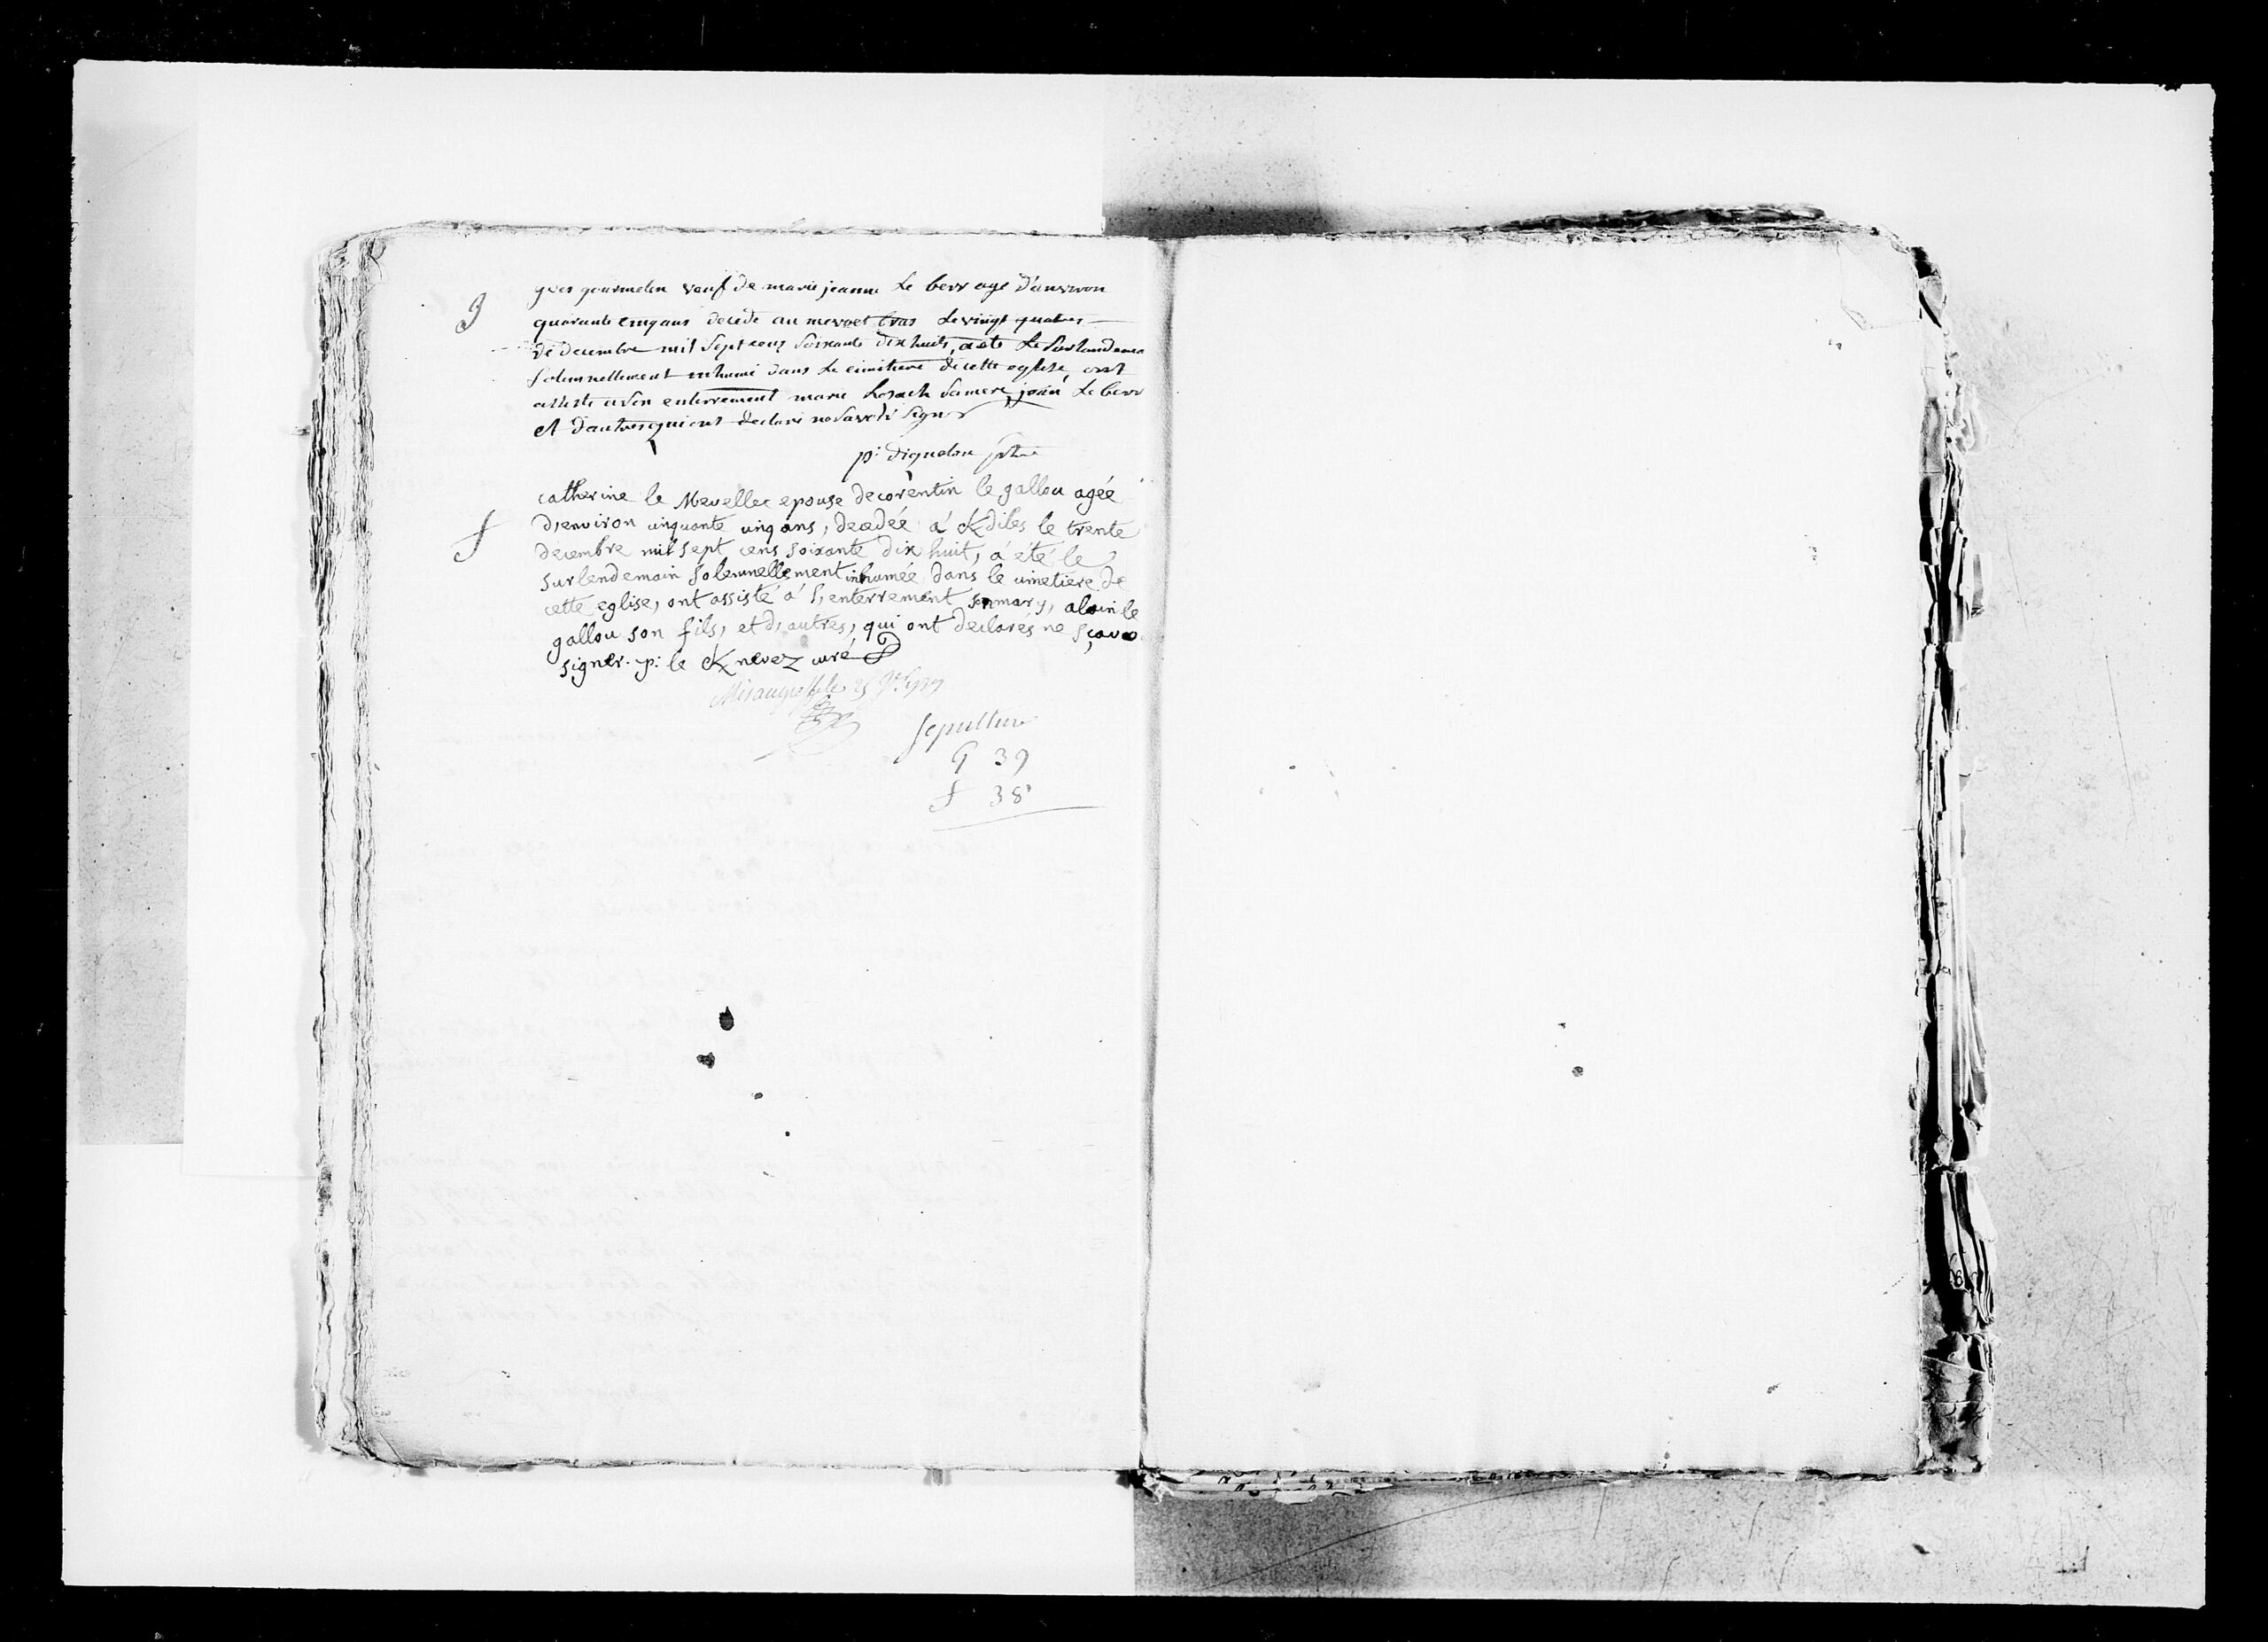 g
yves gourmelen veuf de marie jeanne Le berr agé d'anviron
quarante cinq ans decedé au mevoet bras Le vingt quatres
de decembre mil Sept cenz Soixante dix huit, a eté Le Surlandemen
Solemnellement inhumé dans Le cimitiere de cette eglise, ont
assisté a Son enterrement marie Sa mere, jean Le berr
et d'autres qui ont declaré ne Savoir Signer
p: diquelou ptre
f
catherine le Mevellec epouse de corentin le gallou agée
d,environ cinquante cinq ans, decedée á Kdiles le trente
decembre mil sept cens soixante dix huit, á été le
surlendemain solemnellement inhumée dans le cimetiere de
cette eglise, ont assisté á l,enterrement son mary, alain le
gallou son fils, et d,autres, qui ont declarés ne sçavo
signer. p: le Knevez curé
Sepulture
G 39
f 38